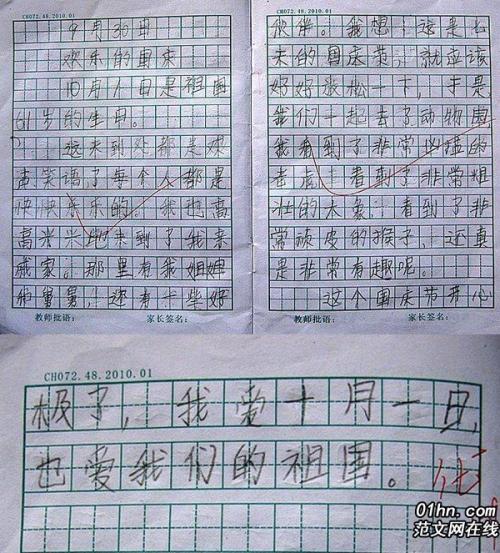 CH072.48.2010.01
9月30日
欢乐的国庆
10月1日是祖国
61岁的生日。
到处都是欢
声笑语了每个人都是
快快乐乐的。我也高
高兴兴地来到了我亲
戚家。那里有我姐
和舅舅,还有一些好
教师批语: 家长签名:
伙伴。我想:这是
的国庆节,就应该
好好放松一下,于是
我们一起去了动物园,
我看到了非常凶猛的
老虎,看到了非常粗
壮的大象,看到了非
常顽皮的猴子,还真
是非常有趣呢。
这个国庆节开心
教师批语: 家长签名:
CH072.48.2010.01
极了,我爱十月一日,
也爱我们的祖国。
01hn.com
范文网在线